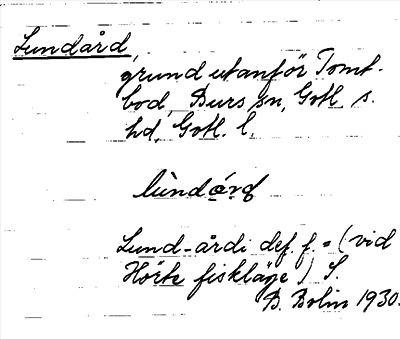 Lundård,
grund utanför Tomt-
bod, Burs sn, Gotl. s.
hd, Gotl. l.
lùndård
Lund-årdi def. f. = (vid
Hörte fiskläge) S.
B. Bolin 1930.